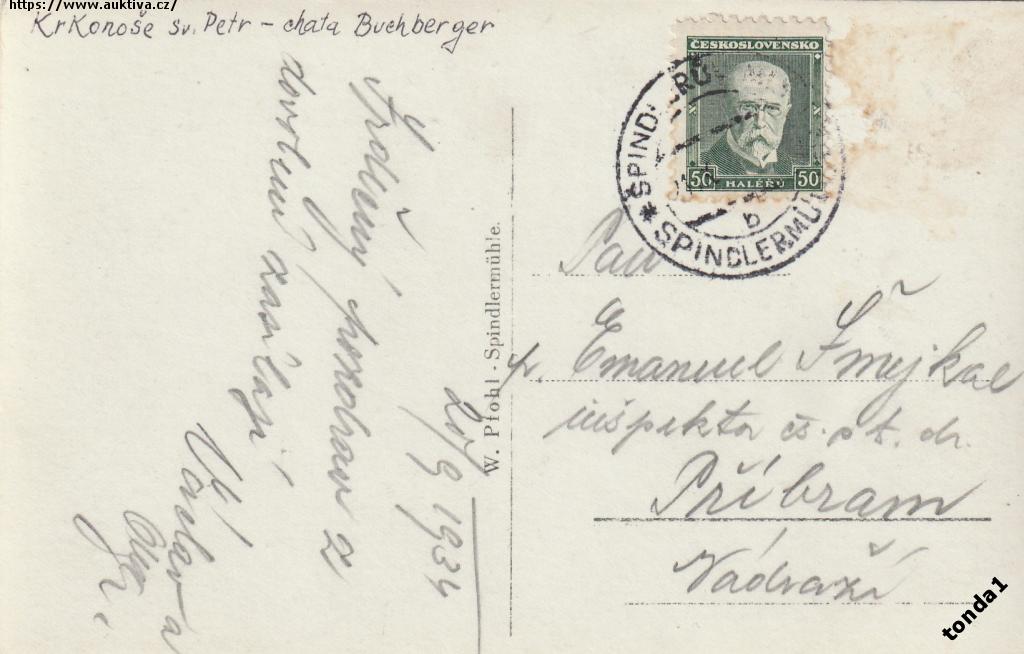 https://www.auktiva.cz/
Krkonoše sv. Petr - chata Buchberger
20/9 1934
Srdečný pozdrav z
dovolené zasílají
Václav a
W. Pfohl - Spindlermühle.
ČESKOSLOVENSKO
50 HALÉŘŮ 50
SPINDLERMÜ
b
Pan
p. Emanuel Šmejkal
inšpektor čs. st. dr.
Příbram
Nádraží
tonda1